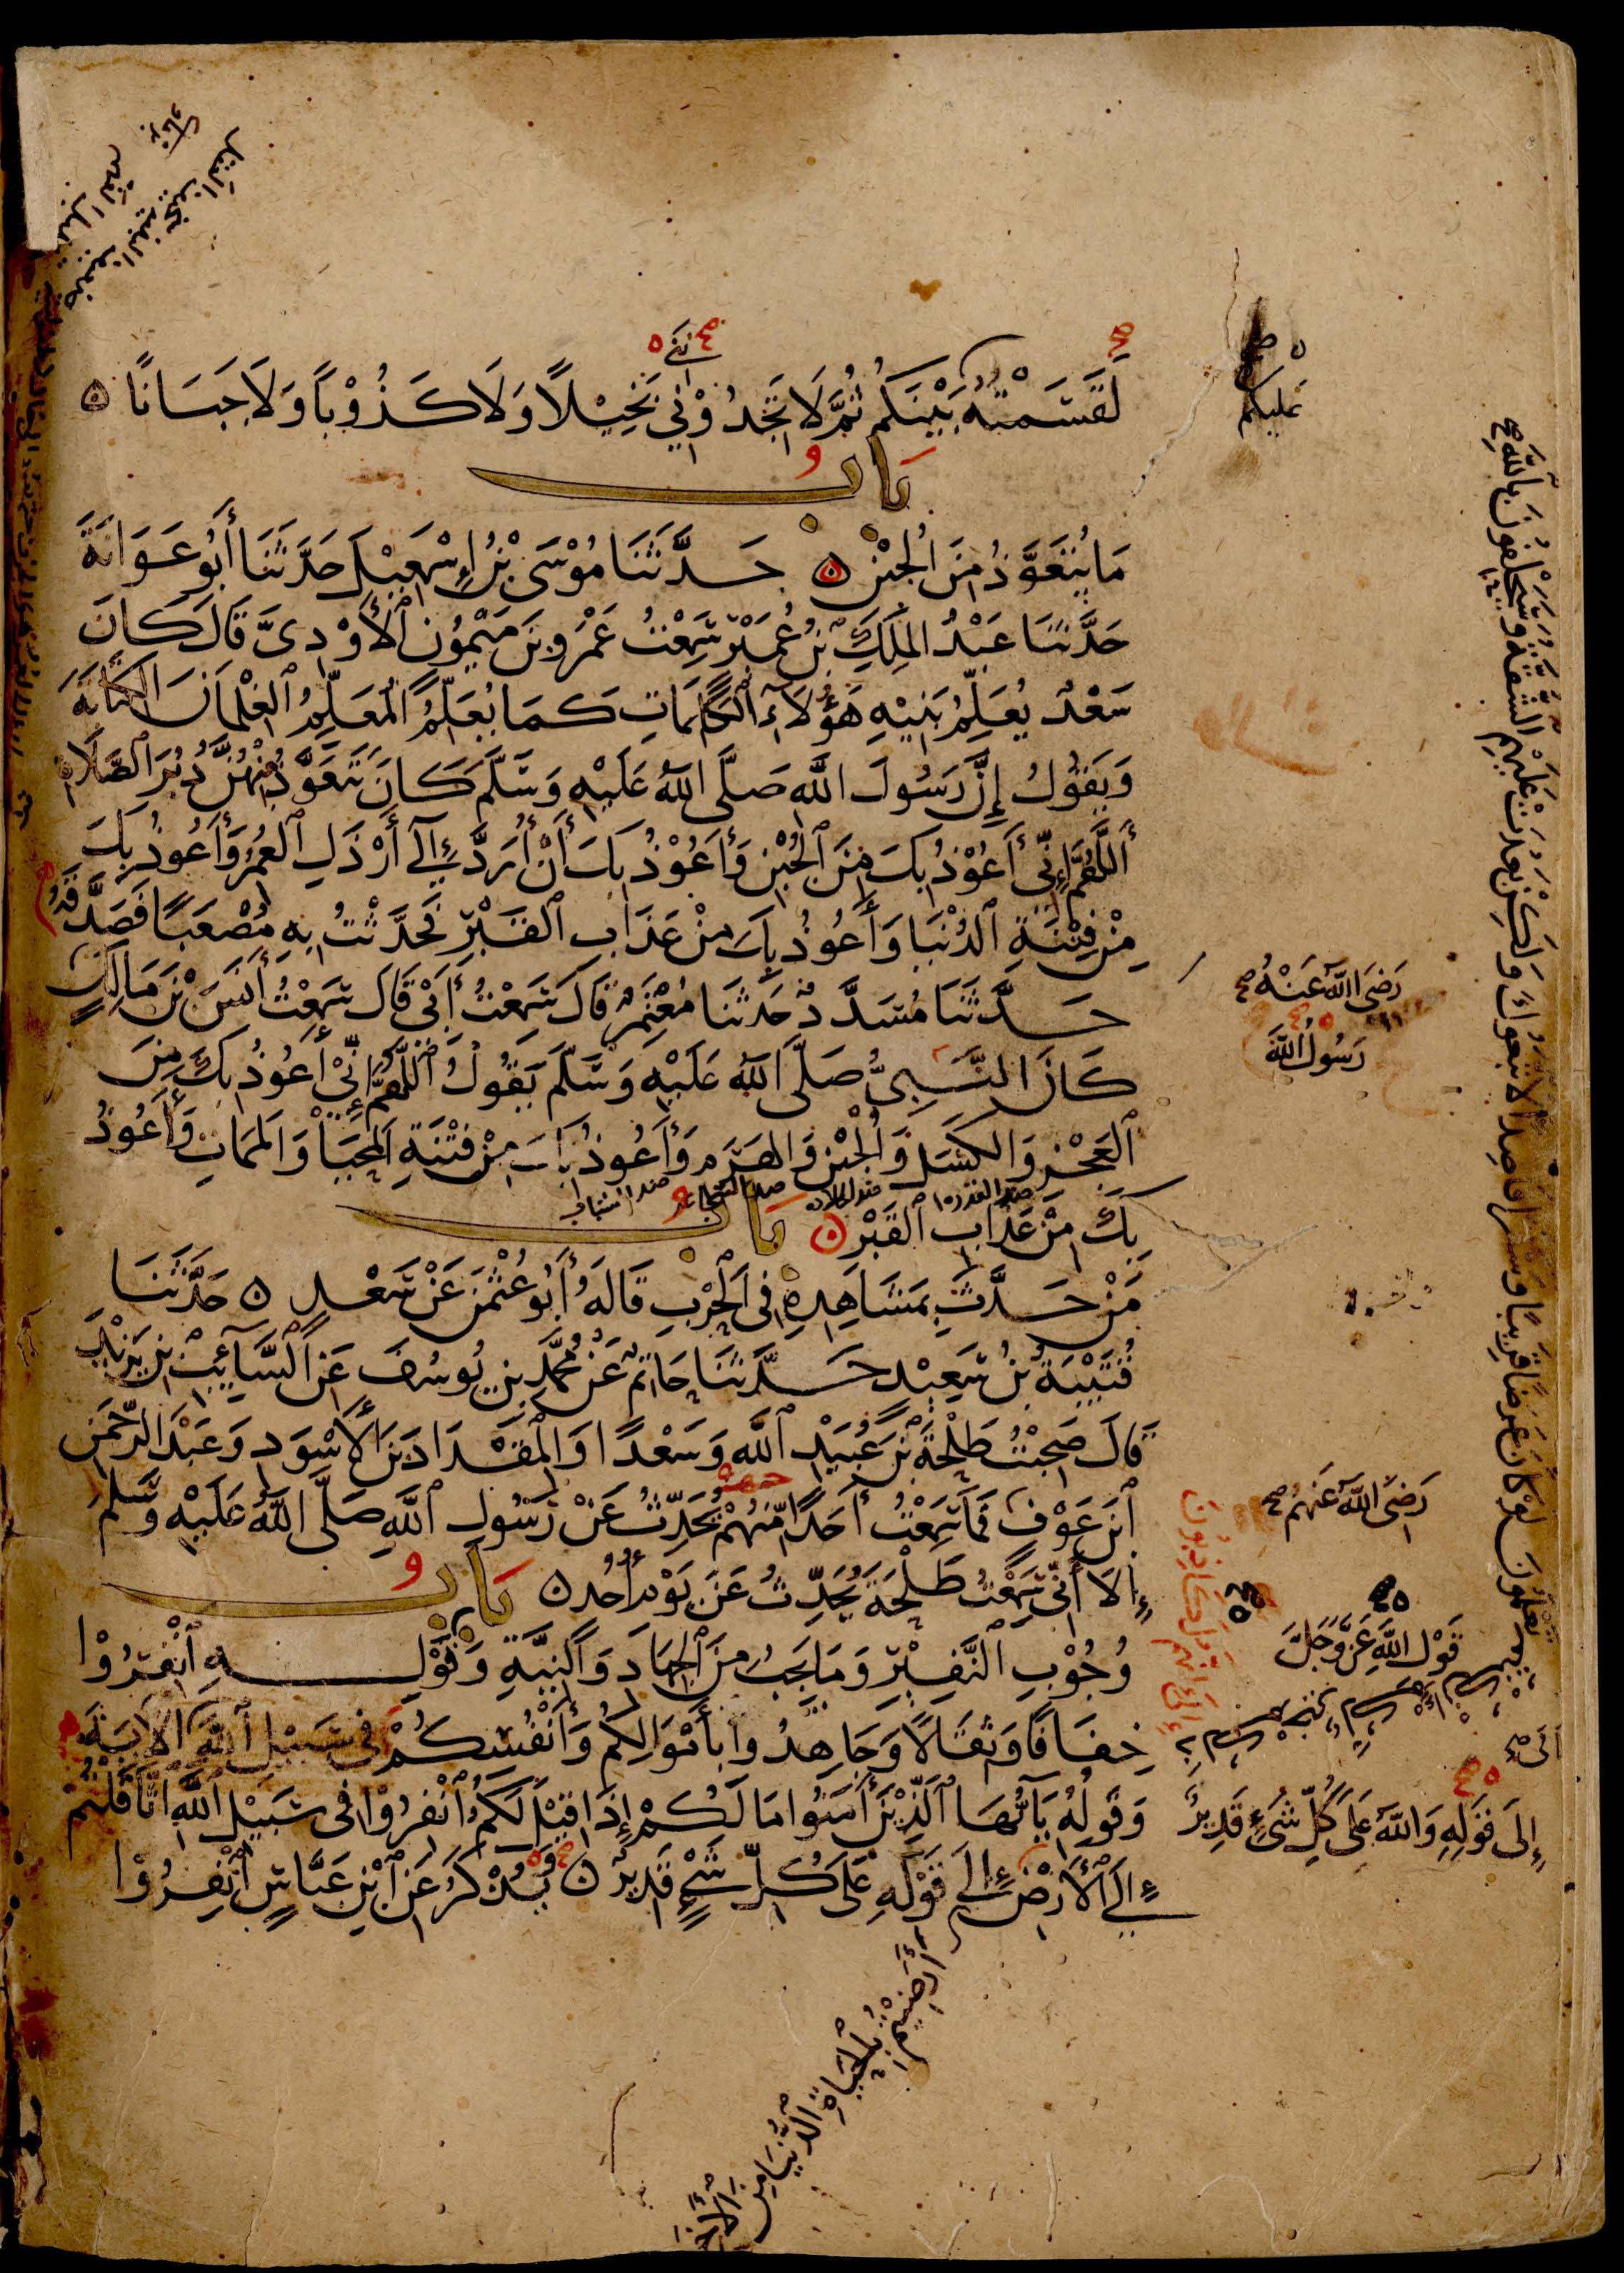 لَقَسَمْتُهُ بَيْنَكُمْ ثُمَّ لَا تَجِدُوْنِي بَخِيْلًا وَلَا كَذُوْبًا وَلَا جَبَانًا
عليكم
بَابُ
مَا يُتَعَوَّذُ مِنَ الْجُبْنِ حَدَّثَنَا مُوْسَى بْنُ إِسْمٰعِيْلَ حَدَّثَنَا أَبُو عَوَانَةَ
حَدَّثَنَا عَبْدُ الْمَلِكِ بْنُ عُمَيْرٍ سَمِعْتُ عَمْرَو بْنَ مَيْمُوْنٍ الْأَوْدِيَّ قَالَ كَانَ
سَعْدٌ يُعَلِّمُ بَنِيْهِ هَؤُلَاءِ الْكَلِمَاتِ كَمَا يُعَلِّمُ الْمُعَلِّمُ الْغِلْمَانَ الْكِتَابَةَ
وَيَقُوْلُ إِنَّ رَسُوْلَ اللَّهِ صَلَّى اللَّهُ عَلَيْهِ وَسَلَّمَ كَانَ يَتَعَوَّذُ مِنْهُنَّ دُبُرَ الصَّلَاةِ
أَللَّهُمَّ إِنِّي أَعُوْذُ بِكَ مِنَ الْجُبْنِ وَأَعُوْذُ بِكَ أَنْ أُرَدَّ إِلَى أَرْذَلِ الْعُمُرِ وَأَعُوذُ بِكَ
مِنْ فِتْنَةِ الدُّنْيَا وَأَعُوذُ بِكَ مِنْ عَذَابِ الْقَبْرِ فَحَدَّثْتُ بِهِ مُصْعَبًا فَصَدَّقَهُ
حَدَّثَنَا مُسَدَّدٌ حَدَّثَنَا مُعْتَمِرٌ قَالَ سَمِعْتُ أَبِيْ قَالَ سَمِعْتُ أَنَسَ بْنَ مَالِكٍ
رَضِيَ اللَّهُ عَنْهُ
كَانَ النَّبِيُّ صَلَّى اللَّهُ عَلَيْهِ وَسَلَّمَ يَقُوْلُ اللَّهُمَّ إِنِّيْ أَعُوْذُ بِكَ مِنَ
رَسُولُ اللَّهِ
الْعَجْزِ وَالْكَسَلِ وَالْجُبْنِ وَالْهَرَمِ وَأَعُوذُ بِكَ مِنْ فِتْنَةِ الْمَحْيَا وَالْمَمَاتِ وَأَعُوذُ
بِكَ مِنْ عَذَابِ الْقَبْرِ بَابُ
مَنْ حَدَّثَ بِمَشَاهِدِهِ فِي الْحَرْبِ قَالَهُ أَبُو عُثْمٰنَ عَنْ سَعْدٍ حَدَّثَنَا
قُتَيْبَةُ بْنُ سَعِيْدٍ حَدَّثَنَا حَاتِمٌ عَنْ مُحَمَّدِ بْنِ يُوسُفَ عَنِ السَّائِبِ بْنِ يَزِيْدَ
قَالَ صَحِبْتُ طَلْحَةَ بْنَ عُبَيْدِ اللَّهِ وَسَعْدًا وَالْمِقْدَادَ بْنَ الْأَسْوَدِ وَعَبْدَ الرَّحْمٰنِ
ابْنَ عَوْفٍ فَمَا سَمِعْتُ أَحَدًا مِنْهُمْ يُحَدِّثُ عَنْ رَسُوْلِ اللَّهِ صَلَّى اللَّهُ عَلَيْهِ وَسَلَّمَ
رَضِيَ اللَّهُ عَنْهُمْ
إِلَّا أَنِّي سَمِعْتُ طَلْحَةَ يُحَدِّثُ عَنْ يَوْمِ أُحُدٍ بَابُ
وُجُوْبِ النَّفِيْرِ وَمَا يَجِبُ مِنَ الْجِهَادِ وَالنِّيَّةِ وَقَوْلِهِ انْفِرُوْا
قَوْلِ اللَّهِ عَزَّ وَجَلَّ
خِفَافًا وَثِقَالًا وَجَاهِدُوا بِأَمْوَالِكُمْ وَأَنْفُسِكُمْ فِي سَبِيْلِ اللَّهِ الْآيَةَ
وَقَوْلُهُ يَا أَيُّهَا الَّذِيْنَ آمَنُوا مَا لَكُمْ إِذَا قِيْلَ لَكُمُ انْفِرُوْا فِي سَبِيْلِ اللَّهِ اثَّاقَلْتُمْ
إِلَى قَوْلِهِ وَاللَّهُ عَلَى كُلِّ شَيْءٍ قَدِيْرٌ
إِلَى الْأَرْضِ إِلَى قَوْلِهِ عَلَى كُلِّ شَيْءٍ قَدِيرٌ يُذْكَرُ عَنِ ابْنِ عَبَّاسٍ انْفِرُوْا
أَرَضِيْتُمْ بِالْحَيَاةِ الدُّنْيَا مِنَ الْآخِرَةِ
لَوْ كَانَ عَرَضًا قَرِيْبًا وَسَفَرًا قَاصِدًا لَاتَّبَعُوكَ وَلَكِنْ بَعُدَتْ عَلَيْهِمُ الشُّقَّةُ وَسَيَحْلِفُونَ بِاللَّهِ